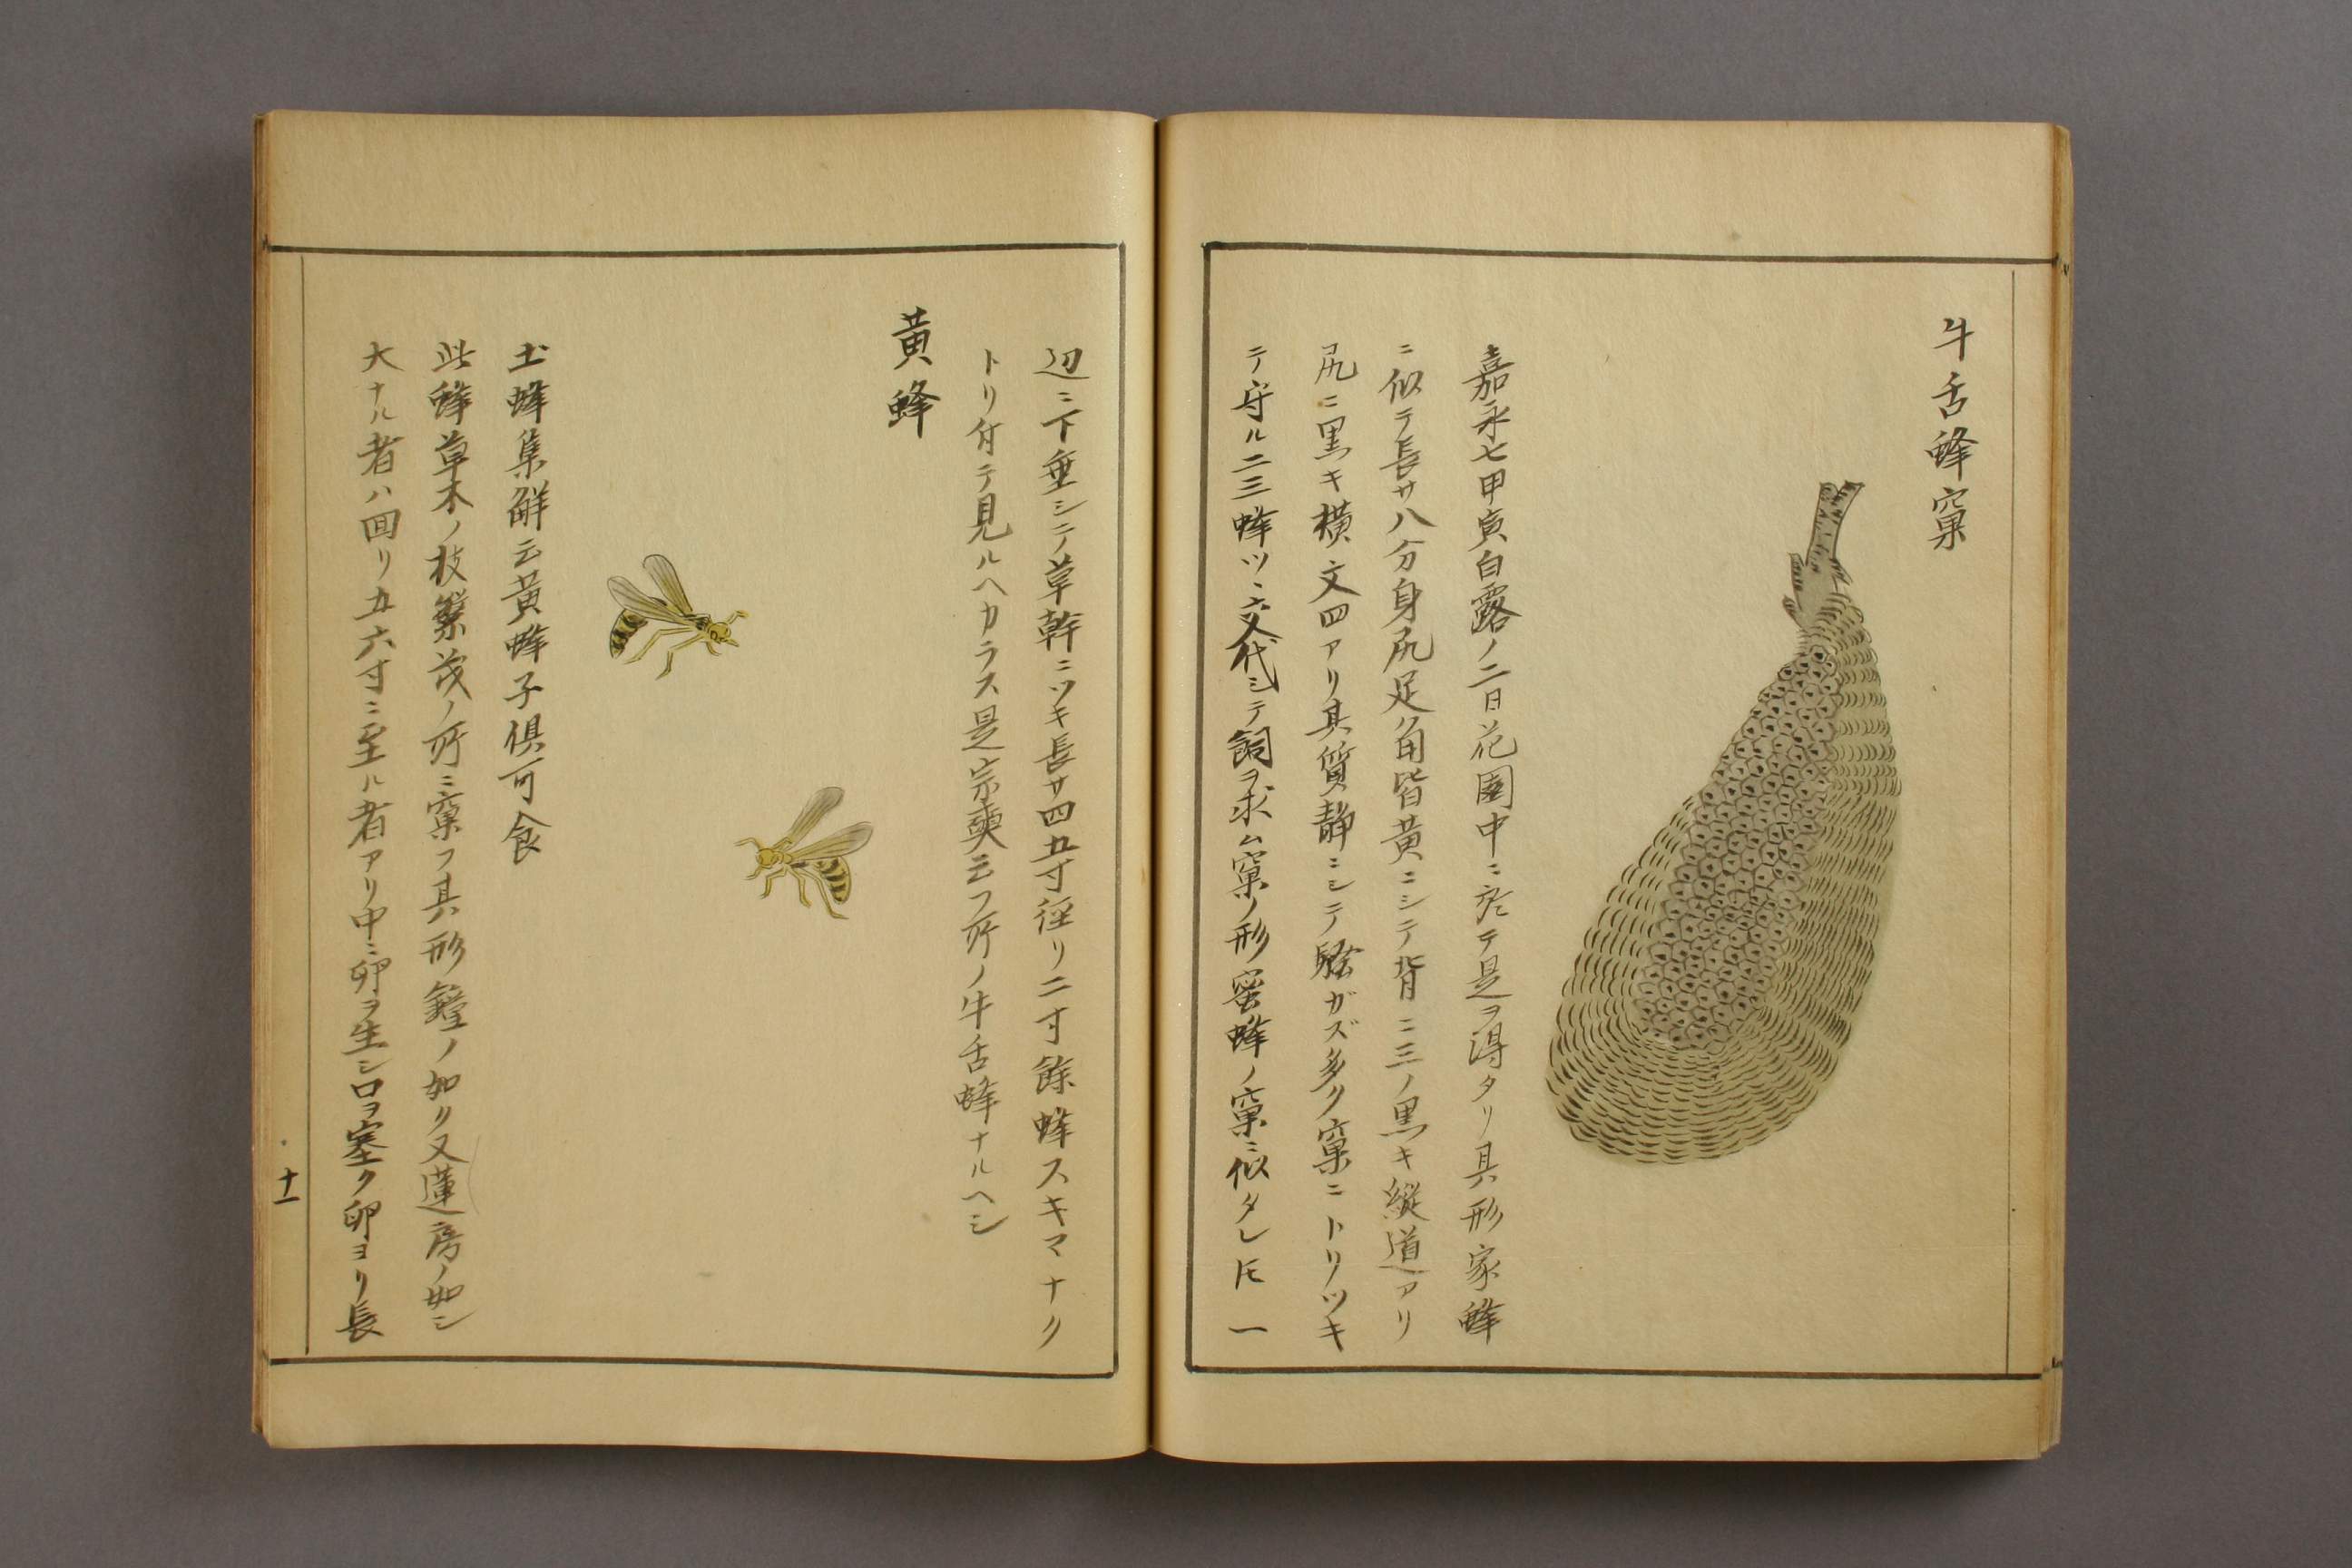 牛舌蜂窠
嘉永七甲寅白露ノ二日花園中ニ於テ是ヲ得タリ其形家蜂
ニ似テ長サ八分身尻足角皆黄ニシテ背ニ三ノ黒キ縦道アリ
尻ニ黒キ横文四アリ其質静ニシテ騒ガズ多ク窠ニトリツキ
テ守ル二三蜂ツヽ交代シテ飼ヲ求ム窠ノ形蜜蜂ノ窠ニ似タレ𪜈一
辺ニ下垂シテ草幹ニツキ長サ四五寸径リ二寸餘蜂スキマナク
トリ付テ見ルヘカラス是宗奭云フ所ノ牛舌蜂ナルヘシ
黄蜂
土蜂集觧云黄蜂子倶可食
此蜂草木ノ枝繁茂ノ所ニ窠フ其形鐘ノ如リ又蓮房ノ如シ
大ナル者ハ囬リ五六寸ニ至ル者アリ中ニ卵ヲ生シ口ヲ塞ク卵ヨリ長
十一